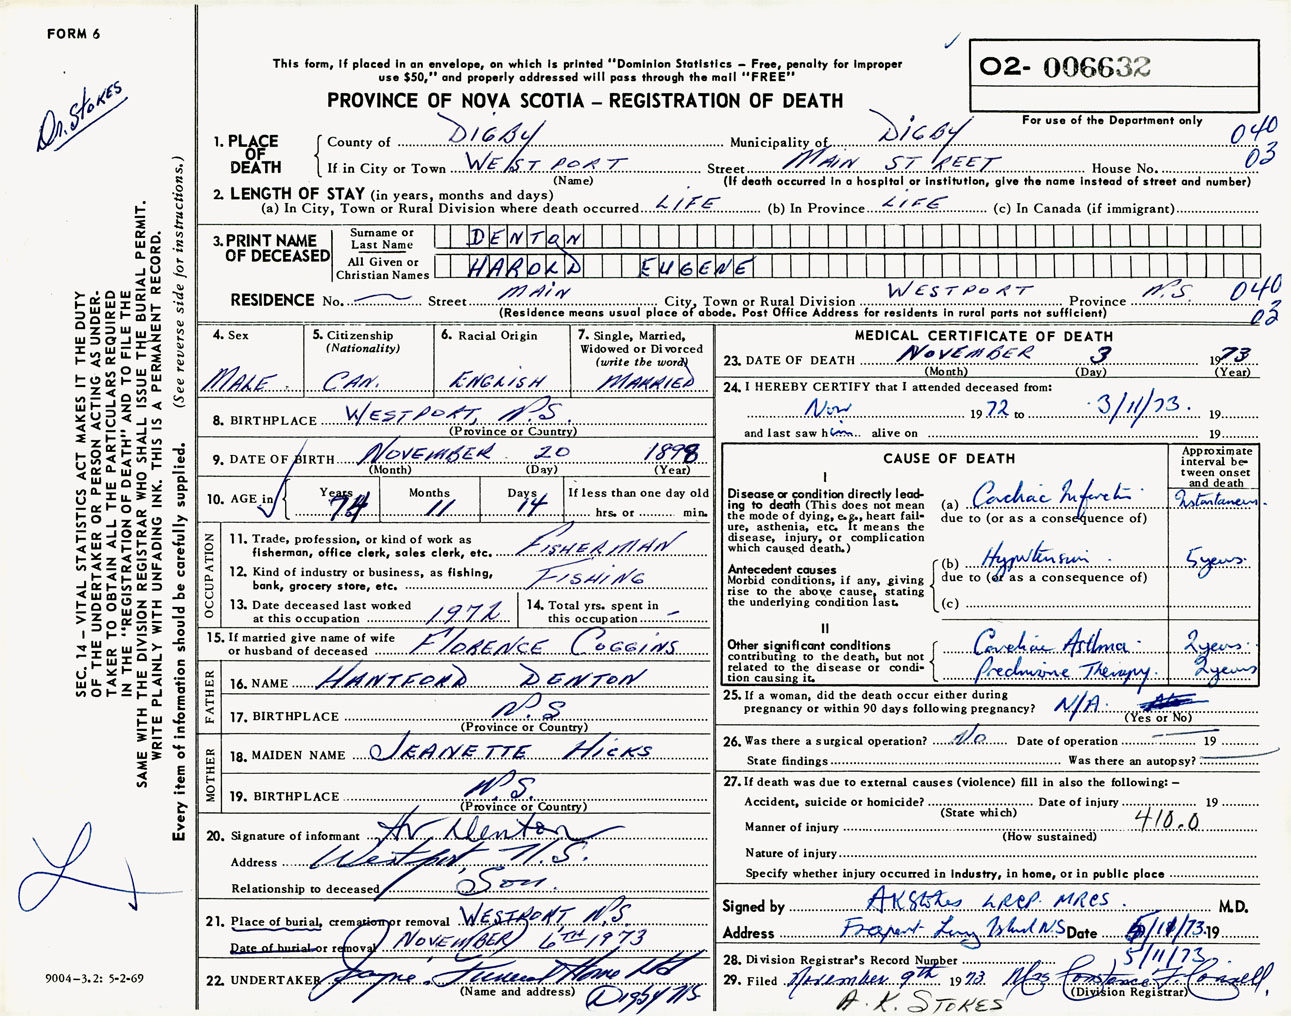 FORM 6
Dr. STOKES
This form, if placed in an envelope, on which is printed "Dominion Statistics – Free, penalty for improper
use $50," and properly addressed will pass through the mail "FREE"
PROVINCE OF NOVA SCOTIA – REGISTRATION OF DEATH
02- 006632
For use of the Department only
040
03
1. PLACE OF DEATH { County of DIGBY Municipality of DIGBY
If in City or Town WESTPORT Street MAIN STREET House No.
(Name) (If death occurred in a hospital or institution, give the name instead of street and number)
2. LENGTH OF STAY (in years, months and days)
(a) In City, Town or Rural Division where death occurred LIFE (b) In Province LIFE (c) In Canada (if immigrant)
3. PRINT NAME OF DECEASED
Surname or Last Name DENTON
All Given or Christian Names HAROLD EUGENE
RESIDENCE No. — Street MAIN City, Town or Rural Division WESTPORT Province N.S 040
03
(Residence means usual place of abode. Post Office Address for residents in rural parts not sufficient)
4. Sex
MALE
5. Citizenship
(Nationality)
CAN.
6. Racial Origin
ENGLISH
7. Single, Married,
Widowed or Divorced
(write the word)
MARRIED
8. BIRTHPLACE WESTPORT, N.S.
(Province or Country)
9. DATE OF BIRTH NOVEMBER 20 1898
(Month) (Day) (Year)
10. AGE in { Years 74 Months 11 Days 14 If less than one day old
hrs. or min.
OCCUPATION
11. Trade, profession, or kind of work as
fisherman, office clerk, sales clerk, etc. FISHERMAN
12. Kind of industry or business, as fishing,
bank, grocery store, etc. FISHING
13. Date deceased last worked
at this occupation 1972
14. Total yrs. spent in
this occupation –
15. If married give name of wife
or husband of deceased FLORENCE COGGINS
FATHER
16. NAME HANTFORD DENTON
17. BIRTHPLACE N.S
(Province or Country)
MOTHER
18. MAIDEN NAME JEANETTE HICKS
19. BIRTHPLACE N.S.
(Province or Country)
20. Signature of informant H V. Denton
Address Westport N.S.
Relationship to deceased Son.
21. Place of burial, cremation or removal WESTPORT N.S
Date of burial or removal NOVEMBER 6TH 1973
22. UNDERTAKER Jayne Funeral Home Ltd
(Name and address) Digby NS
MEDICAL CERTIFICATE OF DEATH
23. DATE OF DEATH NOVEMBER 3 1973
(Month) (Day) (Year)
24. I HEREBY CERTIFY that I attended deceased from:
Nov 1972 to 3/11/73. 19
and last saw him alive on 19
CAUSE OF DEATH
Approximate
interval be-
tween onset
and death
I
Disease or condition directly lead-
ing to death (This does not mean
the mode of dying, e.g., heart fail-
ure, asthenia, etc. It means the
disease, injury, or complication
which caused death.)
(a) Cardiac Infarction Instantaneous.
due to (or as a consequence of)
Antecedent causes
Morbid conditions, if any, giving
rise to the above cause, stating
the underlying condition last.
(b) Hypertension 5 years
due to (or as a consequence of)
(c)
II
Other significant conditions
contributing to the death, but not
related to the disease or condi-
tion causing it.
Cardiac Asthma 2 years.
Prednisone Therapy. 2 years
25. If a woman, did the death occur either during
pregnancy or within 90 days following pregnancy? N/A.
(Yes or No)
26. Was there a surgical operation? No Date of operation — 19 —
State findings Was there an autopsy? —
27. If death was due to external causes (violence) fill in also the following: –
Accident, suicide or homicide? Date of injury 19
(State which)
Manner of injury 410.0
(How sustained)
Nature of injury
Specify whether injury occurred in industry, in home, or in public place
Signed by AKStokes LRCP. MRCS. M.D.
Address Freeport Long Island NS Date 5/11/73. 19
28. Division Registrar's Record Number 5/11/73.
29. Filed November 9th 1973 Mrs Constance F.
(Division Registrar)
A. K. STOKES
SEC. 14 – VITAL STATISTICS ACT MAKES IT THE DUTY
OF THE UNDERTAKER OR PERSON ACTING AS UNDER-
TAKER TO OBTAIN ALL THE PARTICULARS REQUIRED
IN THE "REGISTRATION OF DEATH" AND TO FILE THE
SAME WITH THE DIVISION REGISTRAR WHO SHALL ISSUE THE BURIAL PERMIT.
WRITE PLAINLY WITH UNFADING INK. THIS IS A PERMANENT RECORD.
Every item of information should be carefully supplied. (See reverse side for instructions.)
9004-3.2: 5-2-69